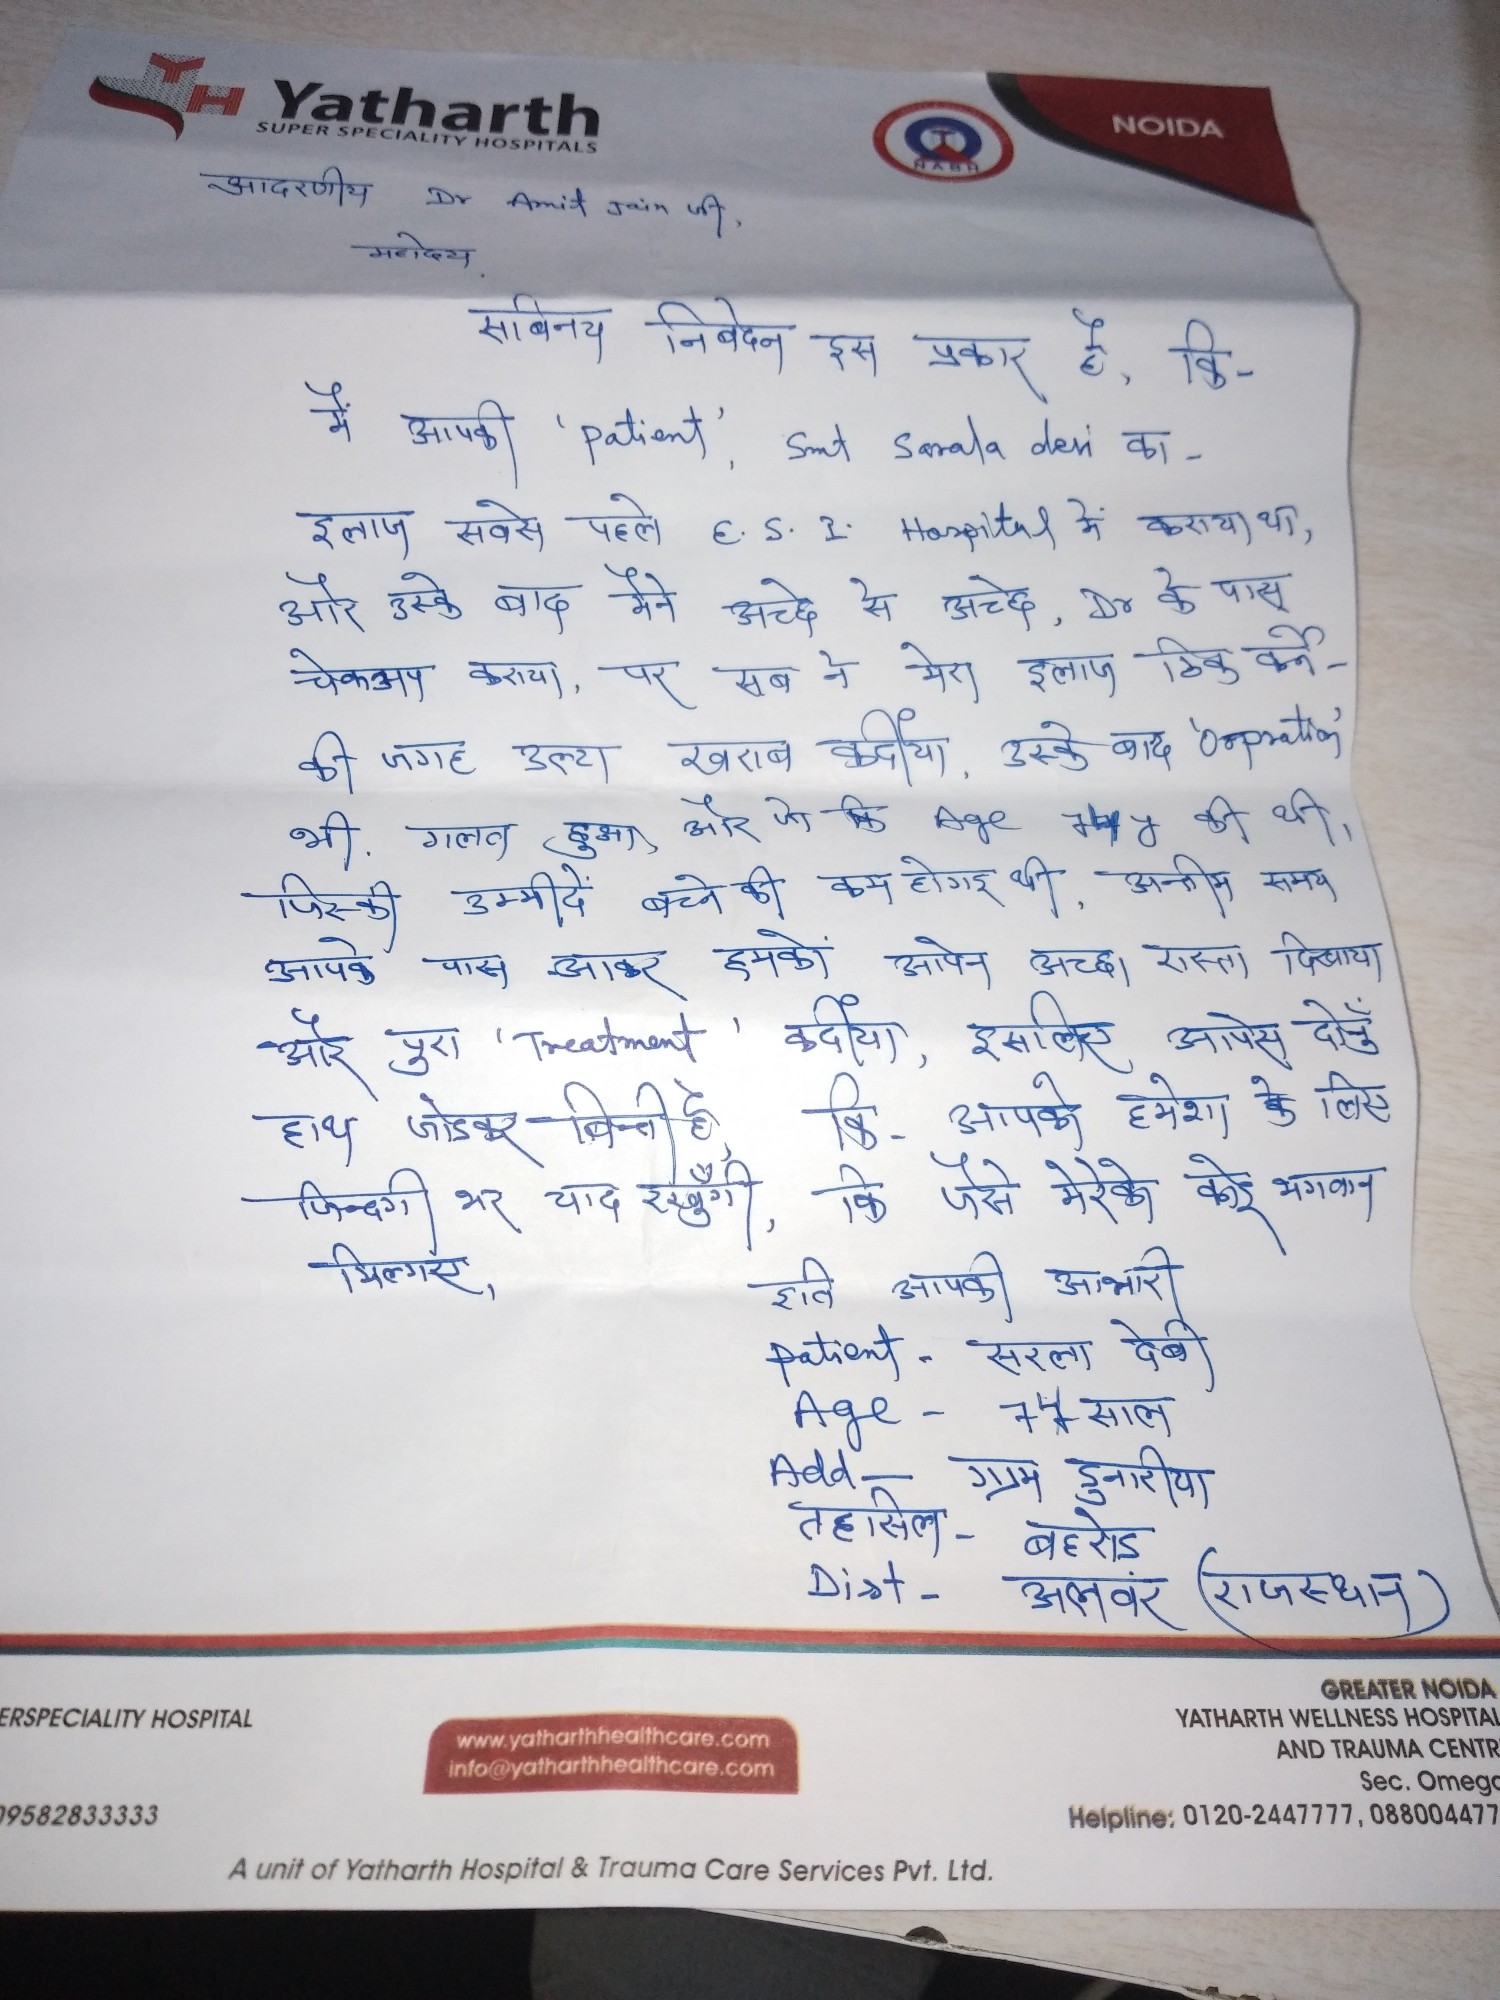 YH Yatharth
SUPER SPECIALITY HOSPITALS
NABH
NOIDA
आदरणीय Dr Amit Jain जी,
महोदय,
सबिनय निबेदन इस प्रकार है, कि-
मैं आपकी 'Patient', Smt Sarala devi का -
इलाज सबसे पहले E. S. I. Hospital में कराया था,
और उस्के बाद मैने अच्छे से अच्छे, Dr के पास
चेकअप कराया, पर सब ने मेरा इलाज ठिक कर्ने -
की जगह उल्टा खराब कर्दीया, उस्के बाद 'Orpration'
भी. गलत हुआ, और जो कि Age की थी,
जिस्की उम्मीदें बच्ने की कम होगइ थी, अन्तीम समय
आपके पास आकर हमको आपने अच्छा रास्ता दिखाया
और पुरा 'Treatment' कर्दीया, इसलिए आपसे दोनुँ
हाथ जोडकर बिन्ती है, कि- आपको हमेशा के लिए
जिन्दगी भर याद रखुँगी, कि जैसे मेरेको कोइ भगवान
मिल्गए,
इति आपकी आभारी
Patient - सरला देबी
Age - साल
Add - ग्राम डुनारीया
तहसिल - बहरोड
Dist - अलवर (राजस्थान)
ERSPECIALITY HOSPITAL
09582833333
www.yatharthhealthcare.com
info@yatharthhealthcare.com
GREATER NOIDA
YATHARTH WELLNESS HOSPITAL
AND TRAUMA CENTR
Sec. Omega
Helpline: 0120-2447777, 088004477
A unit of Yatharth Hospital & Trauma Care Services Pvt. Ltd.